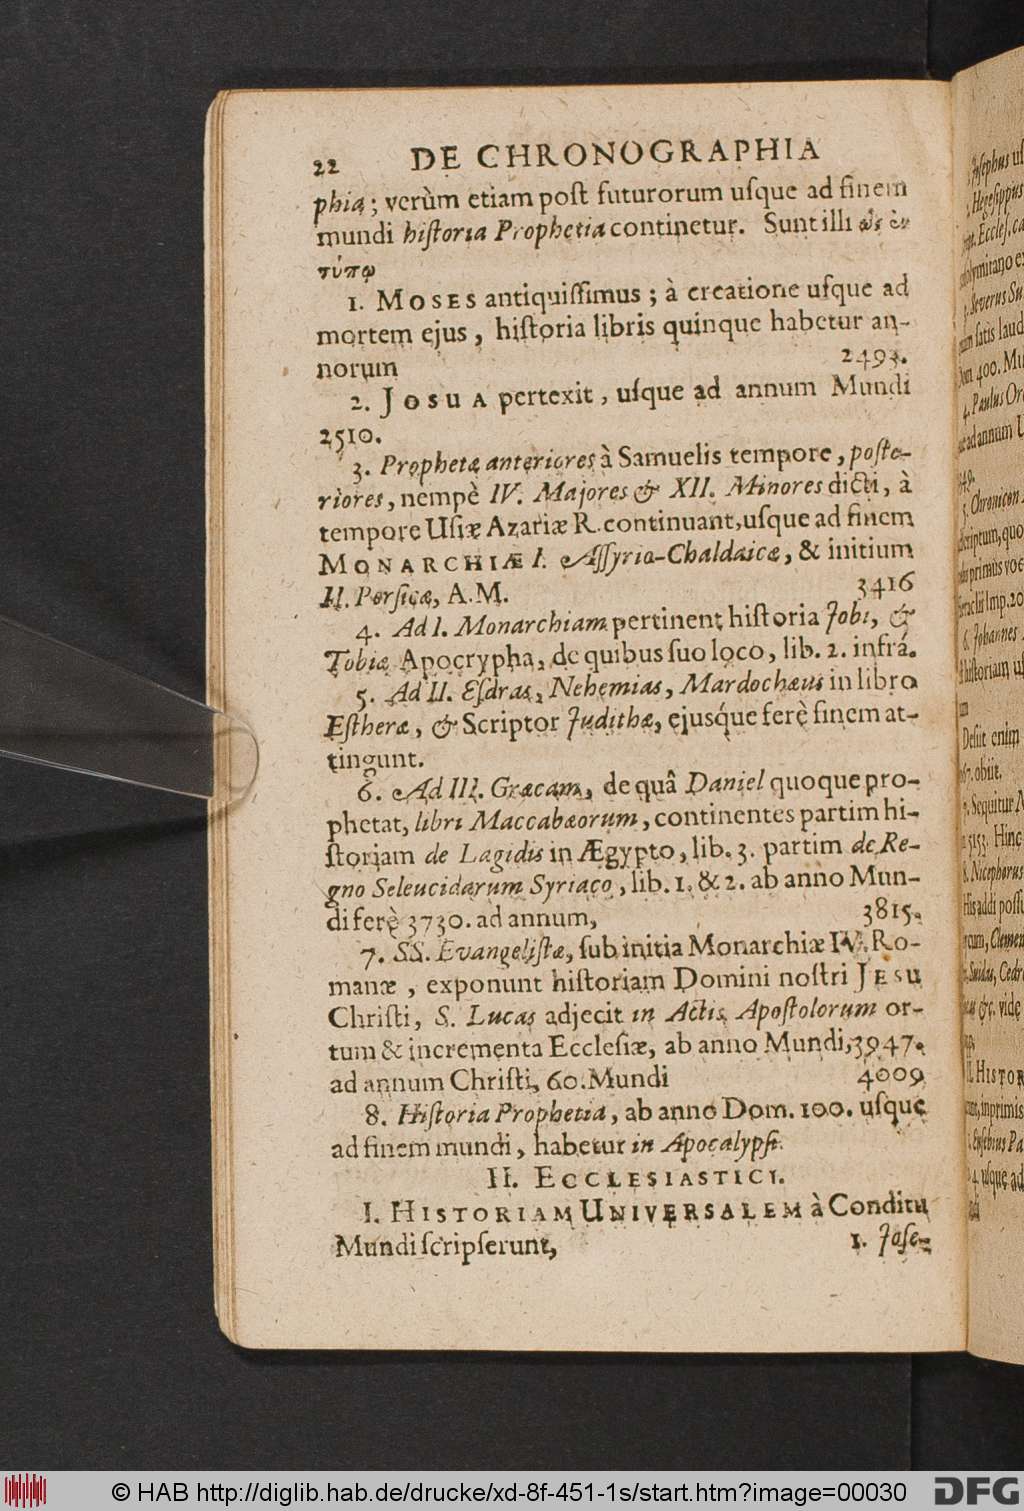 22 DE CHRONOGRAPHIA
phia; verùm etiam poſt futurorum uſque ad finem
mundi hiſtoria Prophetia continetur. Sunt illi ὡς ἐν
τύπῳ
1. MOSES antiquiſſimus; à creatione uſque ad
mortem ejus, hiſtoria libris quinque habetur an-
norum 2493.
2. JOSUA pertexit, uſque ad annum Mundi
2510.
3. Prophetæ anteriores à Samuelis tempore, poſte-
riores, nempè IV. Majores & XII. Minores dicti, à
tempore Uſiæ Azariæ R. continuant, uſque ad finem
MONARCHIÆ I. Aſſyrio-Chaldaicæ, & initium
II. Perſicæ, A.M. 3416
4. Ad I. Monarchiam pertinent hiſtoria Jobi, &
Tobiæ Apocrypha, de quibus ſuo loco, lib. 2. infrá.
5. Ad II. Eſdras, Nehemias, Mardochæus in libro
Eſtheræ, & Scriptor Judithæ, ejusq́ue ferè finem at-
tingunt.
6. Ad III. Græcam, de quâ Daniel quoque pro-
phetat, libri Maccabæorum, continentes partim hi-
ſtoriam de Lagidis in Ægypto, lib. 3. partim de Re-
gno Seleucidarum Syriaco, lib. 1. & 2. ab anno Mun-
di ferè 3730. ad annum, 3815.
7. SS. Evangeliſtæ, ſub initia Monarchiæ IV. Ro-
manæ, exponunt hiſtoriam Domini noſtri JESU
Chriſti, S. Lucas adjecit in Actis Apoſtolorum or-
tum & incrementa Eccleſiæ, ab anno Mundi, 3947.
ad annum Chriſti, 60. Mundi 4009
8. Hiſtoria Prophetia, ab anno Dom. 100. uſque
ad finem mundi, habetur in Apocalypſi.
II. ECCLESIASTICI.
I. HISTORIAM UNIVERSALEM à Conditu
Mundi ſcripſerunt, 1. Joſe-
© HAB http://diglib.hab.de/drucke/xd-8f-451-1s/start.htm?image=00030
DFG